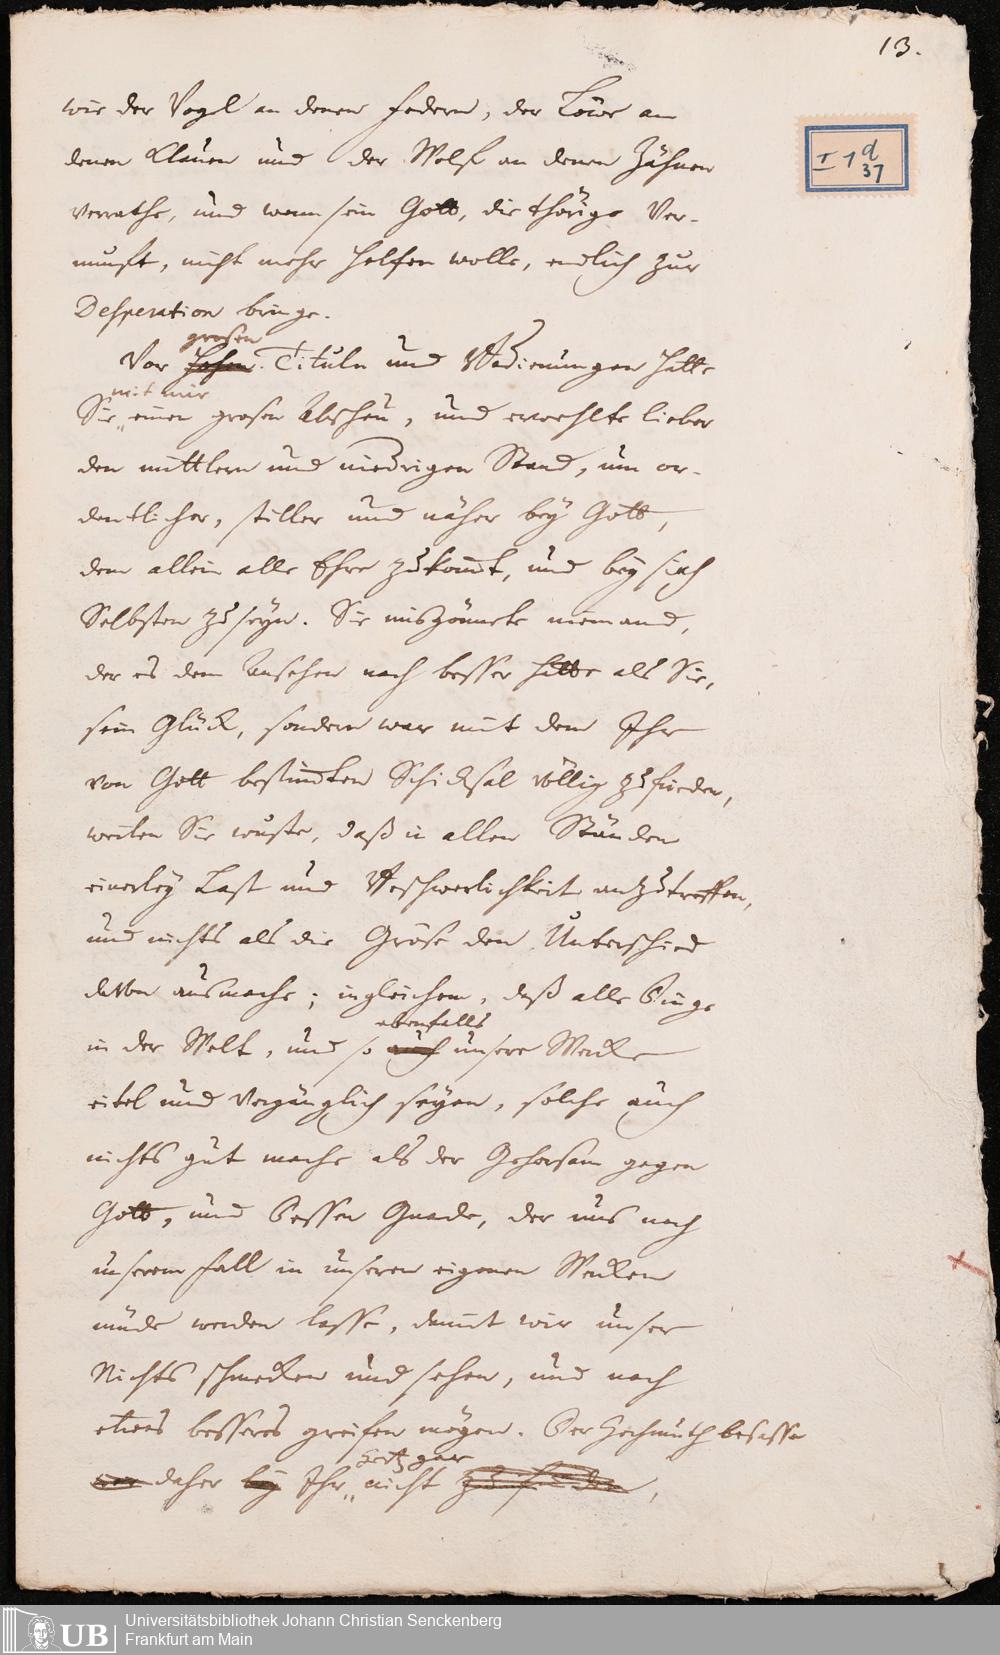 13.
I 1 d
37
wie der Vogel an denen Federn, der Löwe an
denen Klauen und der Wolf an denen Zähnen
verrathe, und wann sein Gott, die thörige Ver-
nunft, nicht mehr helfen wolle, endlich zur
Desperation bringe.
grosen
Vor hohen Tituln und Bedienungen hatte
mit mir
Sie einen grosen Abscheu, und erwehlte lieber
den mittlern und niedrigen Stand, um or-
dentlicher, stiller und näher bey Gott,
dem allein alle Ehre zukommt, und bey sich
Selbsten zu seyn. Sie misgönnete niemand,
der es dem Ansehen nach besser hatte als Sie,
sein Glück, sondern war mit dem Ihr
von Gott bestimmten Schicksal völlig zufrieden,
weilen Sie wuste, daß in allen Ständen
einerley Last und Beschwerlichkeit anzutreffen,
und nichts als die Gröse den Unterschied
davon ausmache; ingleichem, daß alle Dinge
ebenfalls
in der Welt, und so auch unsere Werke
eitel und vergänglich seyen, solche auch
nichts gut mache als der Gehorsam gegen
Gott, und dessen Gnade, der uns nach
unserem Fall in unseren eigenen Werken
müde werden lasse, damit wir unser
Nichts schmecken und sehen, und nach
etwas besseres greifen mögen. Der Hochmuth besasse
Hertz gar
war daher bey Ihr nicht zu finden,
UB Universitätsbibliothek Johann Christian Senckenberg
Frankfurt am Main